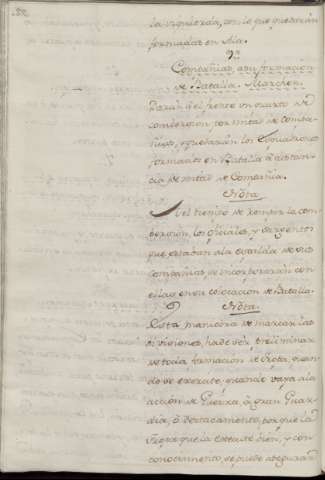 la izquierda, con lo que quedarán
formadas en Ala.
Compañias, a su formacion
de Batalla. Marchen.
Daràn al frente un quarto de
conversion por mitad de Compa-
ñias, y quedarán los Esquadrones
formados en Batalla à distan-
cia de mitad de Compañia.
Nota
Al tiempo de romper la con-
version, los oficiales, y sargentos
que estaban à la espalda de sus
compañias, se incorporaràn con
ellas en su colocacion de Batalla.
Nota.
Esta maniobra de marcar las
divisiones, ha de ser, preliminar
de toda formacion de Tropa, quan-
do se execute, quando vaya à la
accion de Guerra, ò gran Guar-
dia, ò destacamento, porque la
Tropa que la execute bien, y con
conocimiento, se puede asegurar